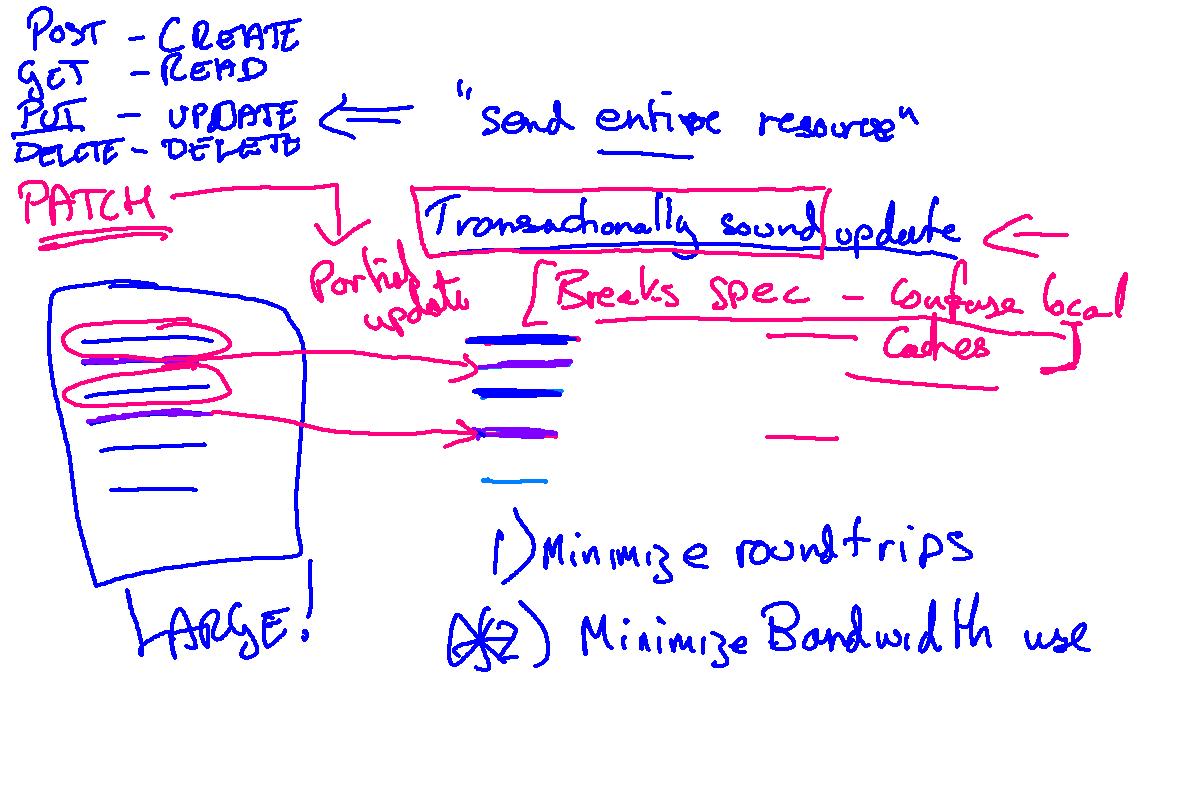 POST - CREATE
GET - READ
PUT - UPDATE
"send entire resource"
DELETE - DELETE
PATCH
Transactionally sound update
Partial update
[Breaks spec - Confuse local Caches]
1) Minimize roundtrips
2) Minimize Bandwidth use
LARGE!